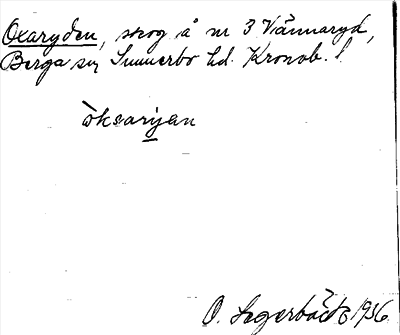 Oxaryden, skog å nr 3 Vännaryd,
Berga sn Sunnerbo hd. Kronob. l.
òksaryan
O. Segerbäck 1936